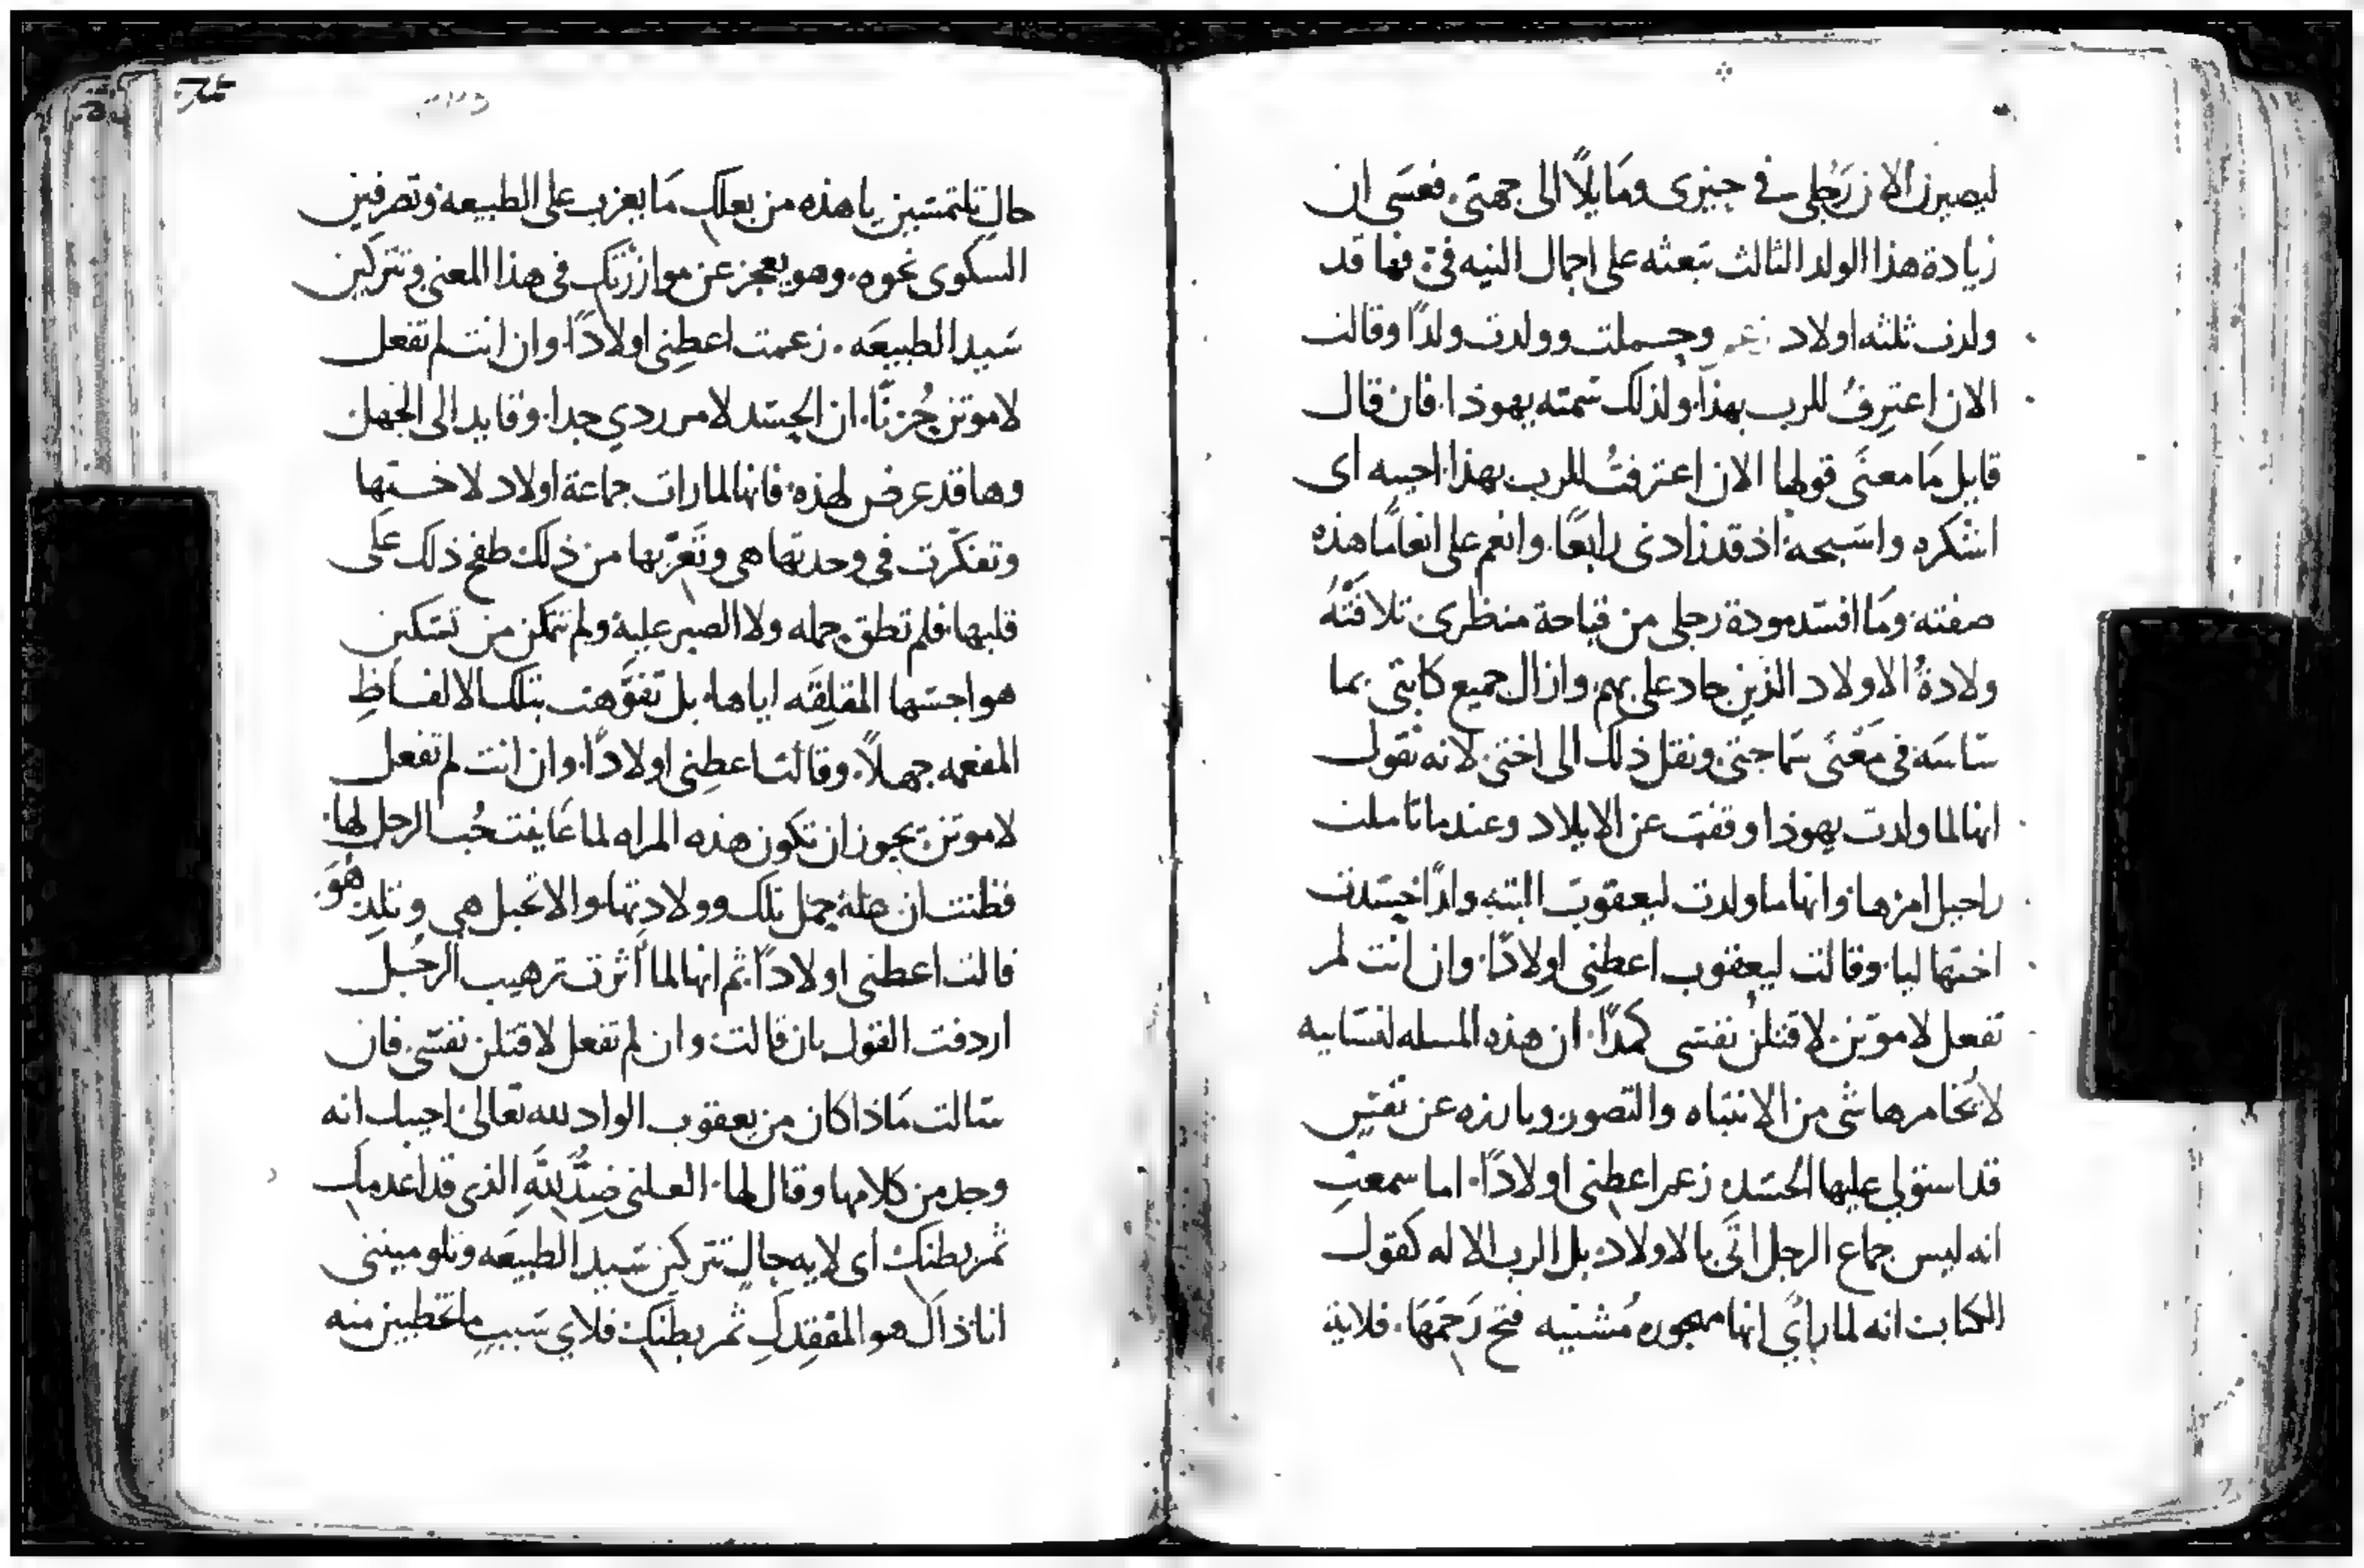 ليصيرن الان رَجُلي في حيزى ومَايلًا الى جهتى. فعسَى ان
زيادة هذا الولد الثالث تبعثه على اجمال النيه فىَّ فها قد
ولدت ثلثه اولاد زعم وحبلت وولدت ولدًا وقالت
الان اعترفُ للرب بهذا. ولذلك سَمته يهوذا. فان قال
قايل مَا معنَى قولها الان اعترفتُ للرب بهذا. اجيبه اى
اشكره واسَبحه. اذ قد زادنى رابعًا. وانعم على انعامًا هذه
صفته. ومَا افسَد مودة رجلى من قباحة منظرى تلافَتْهُ
ولادةُ الاولاد الذين جاد على بهم. وازال جميع كابتى بما
سَاسَه فى مَعْنَى سَماجتى. ونقل ذلك الى اختى. لانه يقول
انها لما ولدت يهوذا وقفت عن الايلاد وعندما تاملت
راحيل امرها. وانها ما ولدت ليعقوب البته ولدًا حسَدت
اختها ليا. وقالت ليعقوب اعطنِى اولادًا. وان انت لم
تفعل لاموتن. لاقتلن نفسَى كمدًا. ان هذه المسله لنسَاييه
لا يخامرها شى من الانتباه والتصور. وبارزه عن نفسٍ
قد استولى عليها الحسَد. زعم اعطِنى اولادًا. اما سمعتِ
انه ليس جماع الرجل اتَى بالاولاد. بل الرب الاله كقول
الكتاب انه لما رأي انها مهجوره مُشنيه فتح رَحِمَهَا. فلاية
حالٍ تلتمسَين ياهذه من بعلكِ مَا يعزب على الطبيعه. وتصرفين
السكوى نحوه. وهو يعجز عن موازرتكِ فى هذا المعنى وتتركين
سَيد الطبيعَه. زعمت اعطِنى اولادًا. وان انت لم تفعل
لاموتن حُزنًا. ان الحسَد لامر ردي جدا. وقايد الى الجهل
وها قد عرض لهذه. فانها لما رات جماعة اولاد لاختها
وتفكّرت فى وحدتها هى وتَعَرّيها من ذلك طفح ذلك علَى
قلبها. فلم تطق حمله ولا الصبر عليه. ولم تتمكن من تسَكين
هواجسَها المقلِقَه اياها. بل تفوَّهت بتلك الالفاظِ
المفعمه جهلًا. وقالت اعطِنى اولادًا. وان انت لم تفعل
لاموتن. يجوز ان تكون هذه المراه لما عَاينت حُب الرجل لها.
فظنت ان علة حبل تلك وولادتها. والا تحبل هى وتلد هُوَ.
قالت اعطنى اولادًا. ثم انها لما أثرت ترهيب الرجُل
اردفت القول بان قالت وان لم تفعل لاقتلن نفسَى. فان
سَالت مَاذا كان من يعقوب الواد لله تعَالى. اجيبك انه
وجد من كلامها وقال لها. العلنى ضِدٌّ لِلَّهِ الذى قد اعدمكِ
ثمر بطنكِ. أى لايه حالٍ تتركين سَيد الطبيعَه وتلومينى
انا. ذاك هو المفقِدكِ ثمر بطنكِ. فلاي سَببٍ ما تخطبين منه